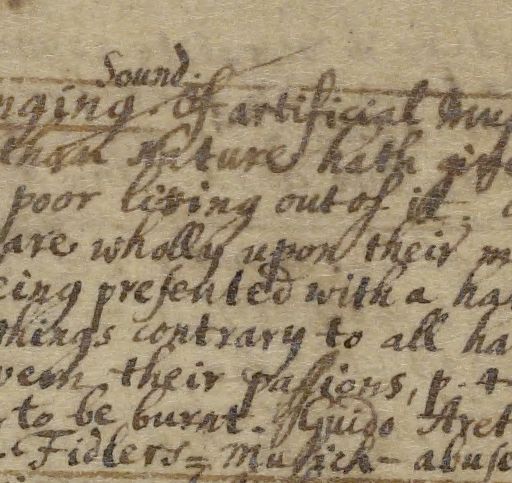 Sound.
nging. Of artificial Mus
than Nature hath give
poor living out of it.
are wholly upon their m
eing presented with a ha
things contrary to all ha
vern their passions, p. 4
to be burnt. Guido Aret
Fidlers = Musick - abuse